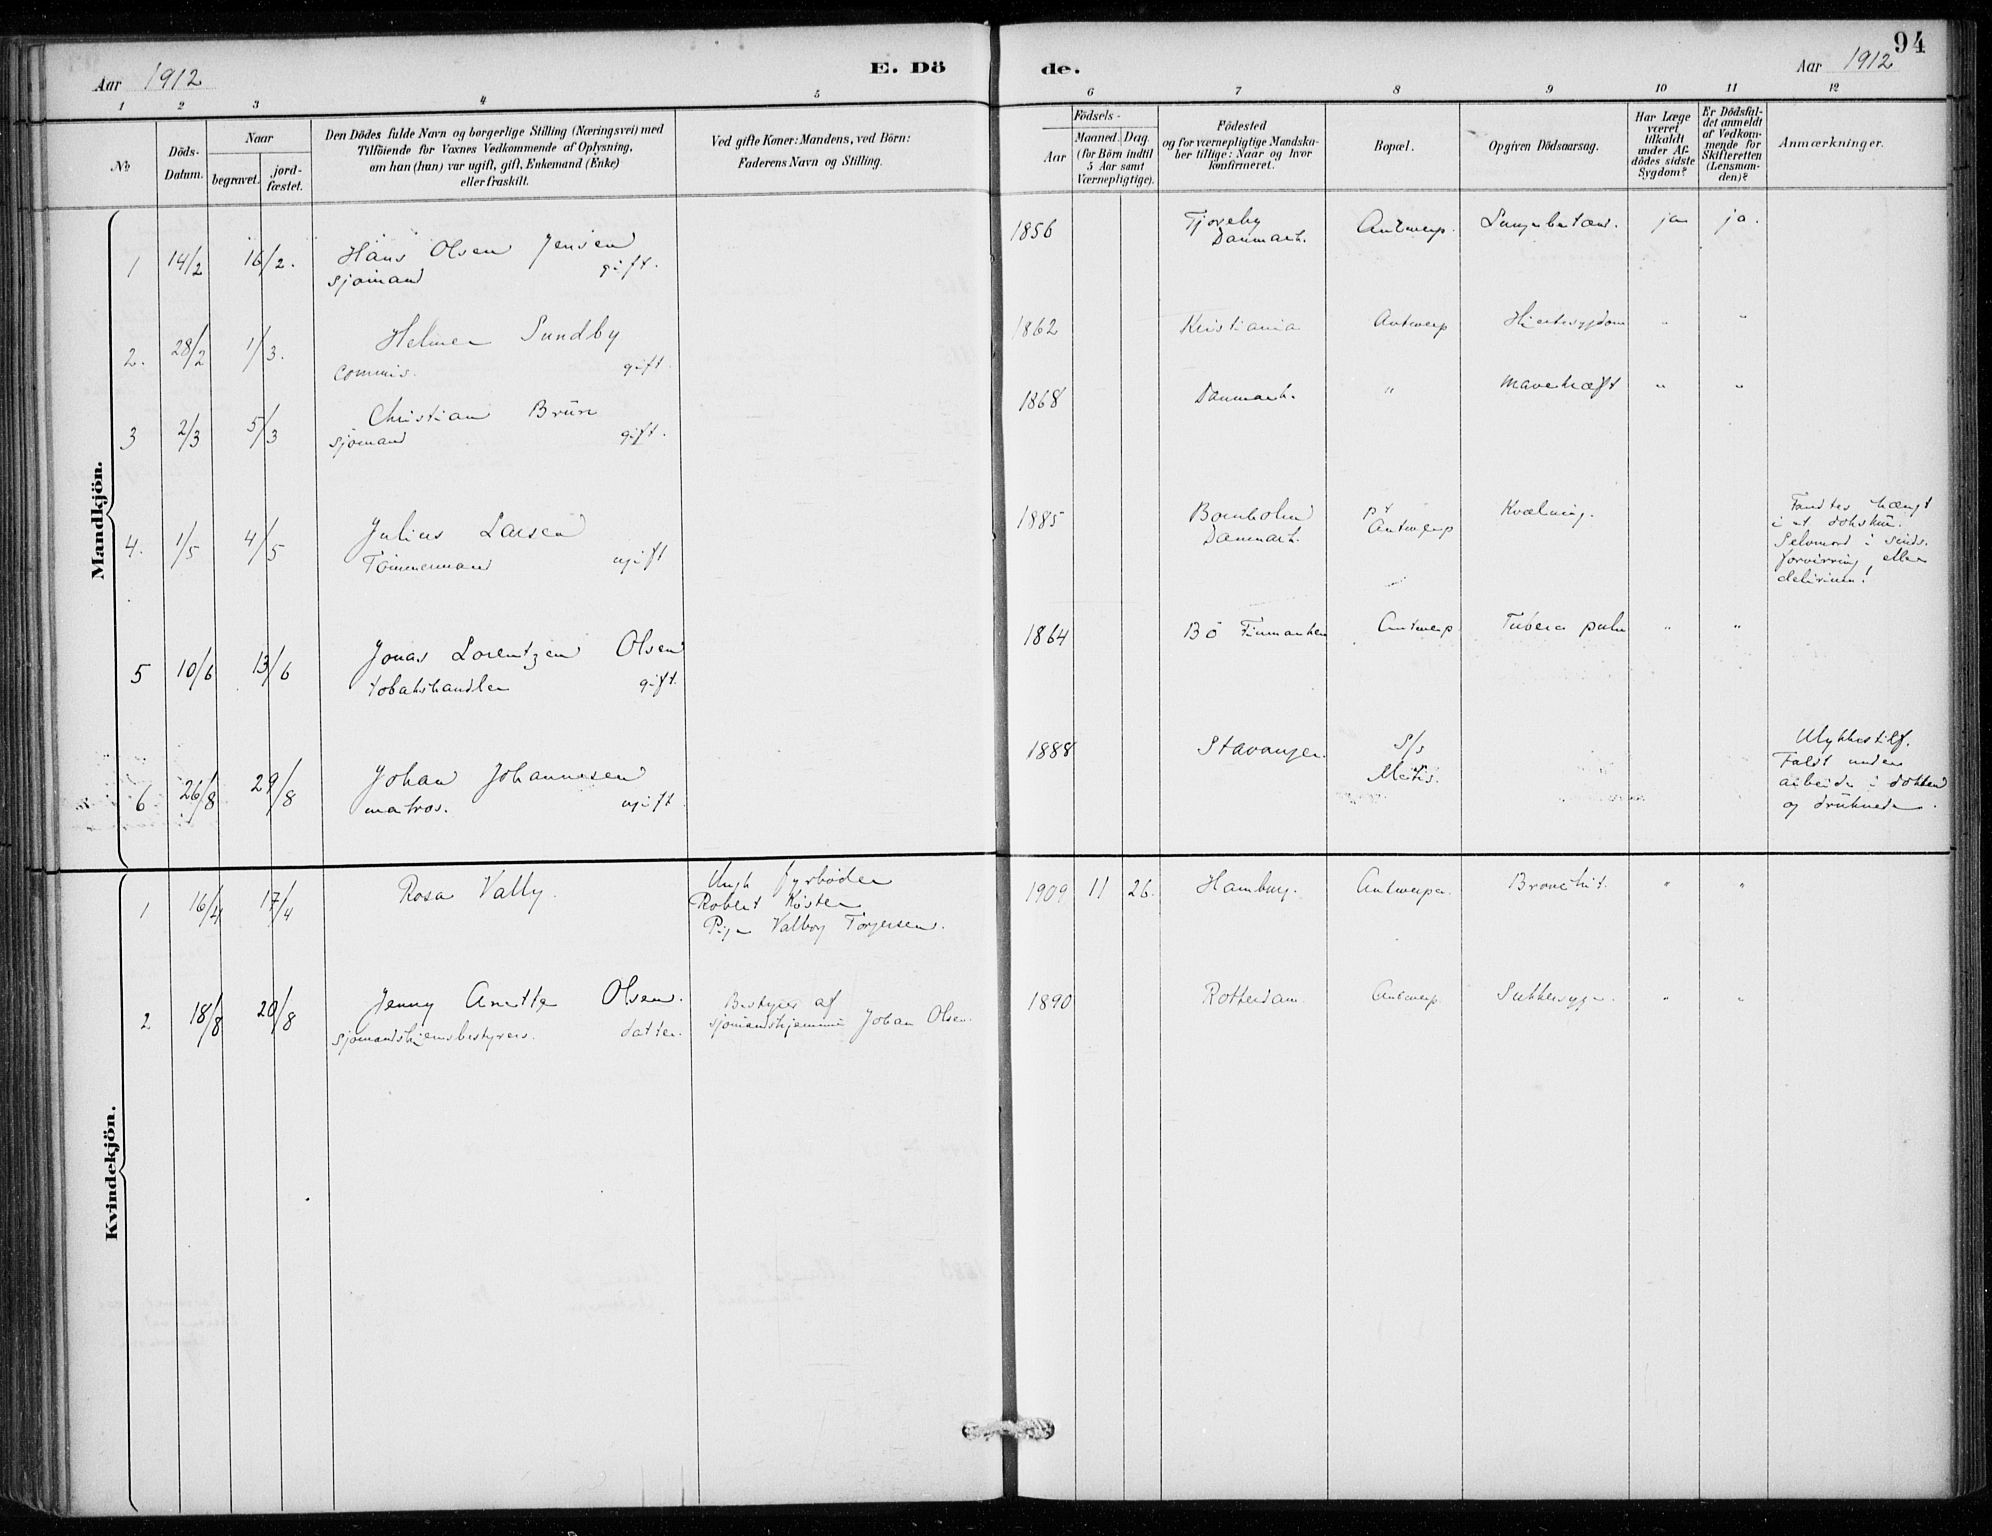 94
Aar 1912 E. Dö de. Aar 1912
1 2 3 4 5 6 7 8 9 10 11 12
№
Döds-
Datum.
Naar
begravet.
jord-
fæstet.
Den Dödes fulde Navn og borgerlige Stilling (Næringsvei) med
Tilföiende for Voxnes Vedkommende af Oplysning,
om han (hun) var ugift, gift, Enkemand (Enke)
eller fraskilt.
Ved gifte Koner: Mandens, ved Börn:
Faderens Navn og Stilling.
Födsels-
Aar
Maaned. Dag.
(for Börn indtil
5 Aar samt
Værnepligtige).
Födested
og for værnepligtige Mandska-
ber tillige: Naar og hvor
konfirmeret.
Bopæl.
Opgiven Dödsaarsag.
Har Læge
været
tilkaldt
under Af-
dödes sidste
Sygdom?
Er Dödsfal-
det anmeldt
af Vedkom-
mende for
Skifteretten
(Lensman-
den)?
Anmærkninger.
Mandkjön.
1 14/2 16/2. Hans Olsen Jensen
sjømand gift.
1856 Danmark. Antwerp. ja ja.
2. 28/2 1/3. Helmer Sundby
commis. gift.
1862 Kristiania Antwerp Hjertesygdom " "
3 2/3 5/3 Christian Brün
sjømand gift.
1868 Danmark. " Mavekræft " "
4. 1/5 4/5 Julius Larsen
Tømmermand ugift
1885 Bornholm
Danmark. pt
Antwerp Kvælning.
Fandtes hængt
i et dokskur.
Selvmord i sinds-
forvirring, eller
delirium!
5 10/6 13/6 Jonas Lorentzen Olsen
tobakshandler gift.
1864 Bö Finmarken Antwerp. Tuberc pulm " "
6 26/8 29/8 Johan Johannesen
matros. ugift
1888 Stavanger. S/s
Ulykkestilf.
Faldt under
arbeide i dokken
og druknede.
Kvindekjön.
1 16/4 17/4 Rosa Vally.
Ungk fyrbøder
Robert Köster
Pige Valborg Torgersen.
1909 11 26. Hamburg. Antwerpen. Bronchit. " "
2 18/8 20/8 Jenny Anette Olsen.
sjømandshjemsbestyrers. datter.
Bestyrer af
sjømandshjemmet Johan Olsen.
1890 Rotterdam. Antwerp. Sukkersyge. " "